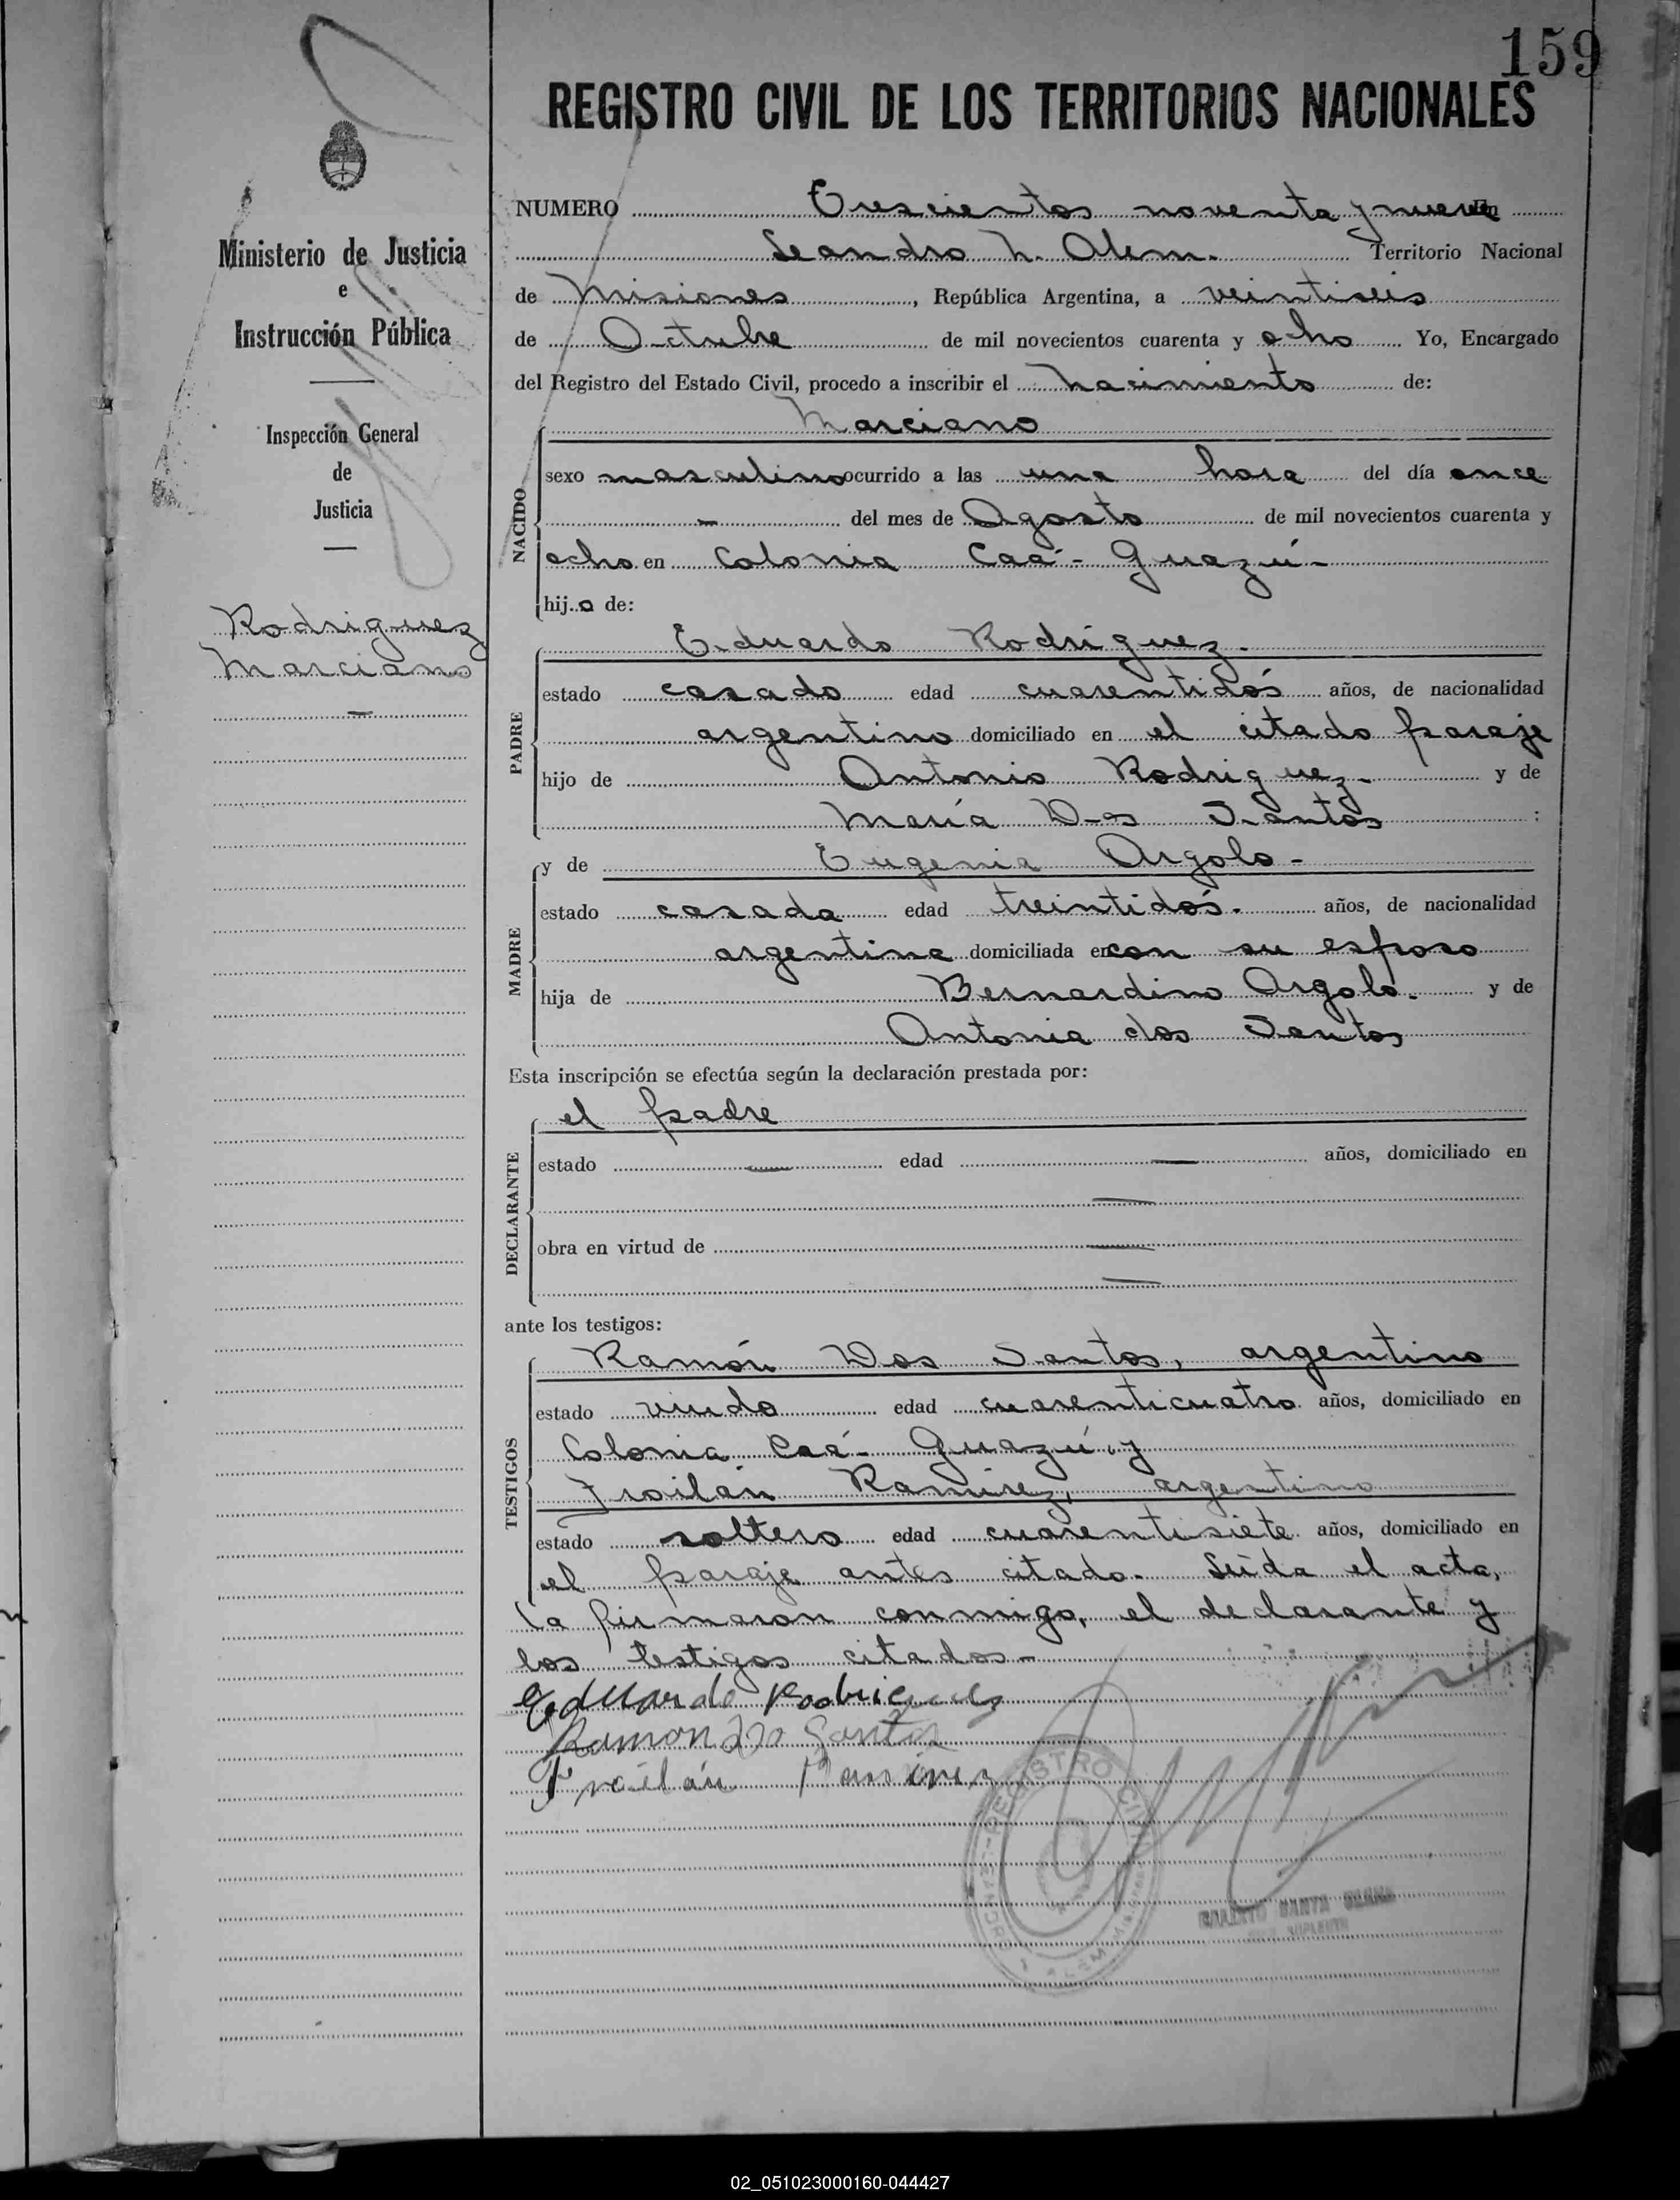 159
REGISTRO CIVIL DE LOS TERRITORIOS NACIONALES
Ministerio de Justicia
e
Instrucción Pública
Inspección General
de
Justicia
Rodriguez
Marciano
NUMERO Trescientos noventa y nueve En
Leandro N. Alem. Territorio Nacional
de Misiones, República Argentina, a veintiseis
de Octubre de mil novecientos cuarenta y ocho Yo, Encargado
del Registro del Estado Civil, procedo a inscribir el nacimiento de:
NACIDO
Marciano
sexo masculino ocurrido a las una hora del día once
- del mes de Agosto de mil novecientos cuarenta y
ocho en Colonia Caá-Guazú-
hijo de:
PADRE
Eduardo Rodriguez.
estado casado edad cuarentidós años, de nacionalidad
argentino domiciliado en el citado paraje
hijo de Antonio Rodriguez. y de
María Dos Santos :
MADRE
y de Eugenia Argolo-
estado casada edad treintidós. años, de nacionalidad
argentina domiciliada en con su esposo
hija de Bernardino Argolo. y de
Antonia dos Santos
Esta inscripción se efectúa según la declaración prestada por:
DECLARANTE
el padre
estado — edad — años, domiciliado en
—
obra en virtud de —
—
ante los testigos:
TESTIGOS
Ramón Dos Santos, argentino
estado viudo edad cuarenticuatro años, domiciliado en
Colonia Caá-Guazú, y
Froilán Ramirez, argentino
estado soltero edad cuarentisiete años, domiciliado en
el paraje antes citado. Leída el acta,
la firmaron conmigo, el declarante y
los testigos citados-
Eduardo Rodriguez
Ramon Do Santos
Froilán Ramirez
REGISTRO CIVIL
ALEM
SANTA
SUPLENTE
02_051023000160-044427